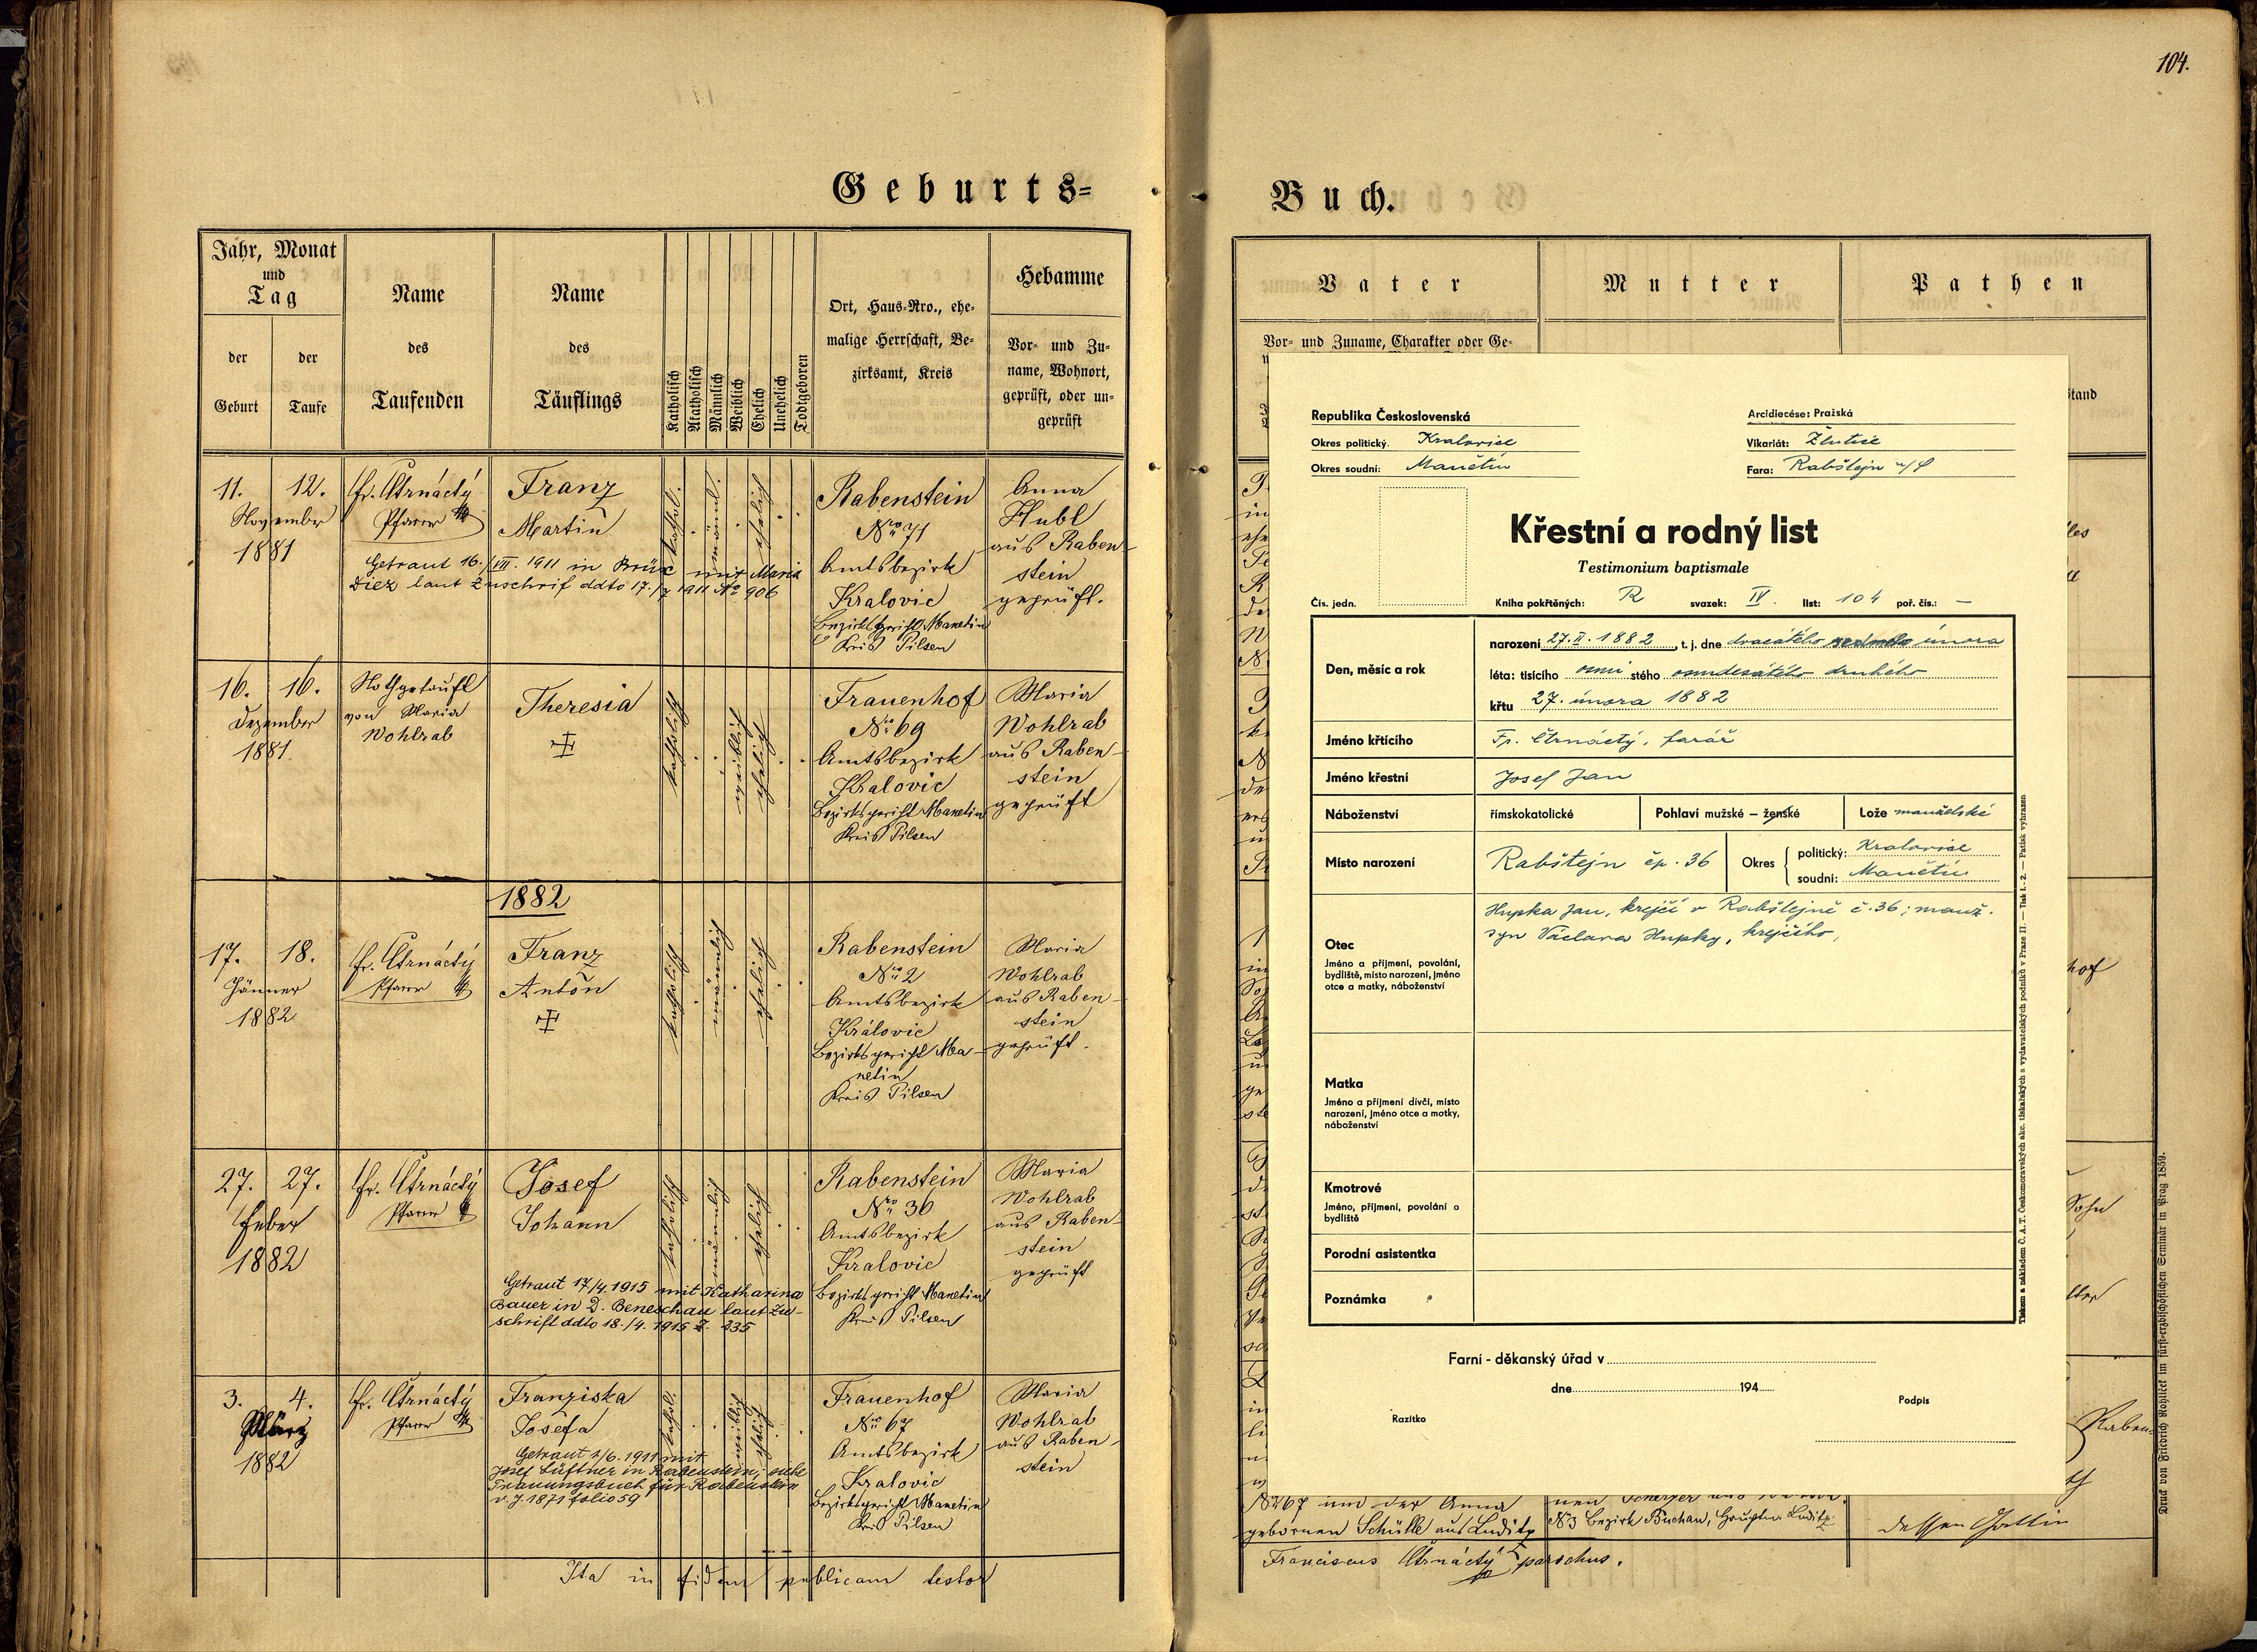 104.
Geburts=
Buch.
Jahr, Monat
und
Tag
der
Geburt
der
Taufe
Name
des
Taufenden
Name
des
Täuflings
Katholisch
Akatholisch
Männlich
Weiblich
Ehelich
Unehelich
Todtgeboren
Ort, Haus-Nro., ehe-
malige Herrschaft, Be-
zirksamt, Kreis
Hebamme
Vor- und Zu-
name, Wohnort,
geprüft, oder un-
geprüft
11. 12.
November
1881
Fr. Čtrnáctý
Pfarrer
Franz
Martin
Getraut 16./VII. 1911 in Brüx mit Maria
Diez laut Zuschrif ddto 17./7 1911 No 906
kathol.
männl.
ehelich
Rabenstein
Nro 71
Amtsbezirk
Kralovic
Bezirksgericht Manetin
Kreis Pilsen
Anna
Hubl
aus Raben-
stein
geprüft.
16. 16.
Dezember
1881
Nothgetauft
von Maria
Wohlrab
Theresia
katholisch
weiblich
ehelich
Frauenhof
No 69
Amtsbezirk
Kralovic
Bezirksgericht Manetin
Kreis Pilsen
Maria
Wohlrab
aus Raben-
stein
geprüft
1882
17. 18.
Jänner
1882
Fr. Čtrnáctý
Pfarrer
Franz
Anton
katholisch
männlich
ehelich
Rabenstein
Nro 2
Amtsbezirk
Královic
Bezirksgericht Ma-
netin
Kreis Pilsen
Maria
Wohlrab
aus Raben-
stein
geprüft.
27. 27.
Feber
1882
Fr. Čtrnáctý
Pfarrer
Josef
Johann
Getraut 17/4. 1915 mit Katharina
Bauer in D. Beneschau laut Zu-
schrift ddto 18./4. 1915 Z. 335
katholisch
männlich
ehelich
Rabenstein
Nro 36
Amtsbezirk
Kralovic
Bezirksgericht Manetin
Kreis Pilsen
Maria
Wohlrab
aus Raben-
stein
geprüft
3. 4.
März
1882
Fr. Čtrnáctý
Pfarrer
Franziska
Josefa
Getraut 4/6. 1911 mit
Josef Lüftner in Rabenstein; siehe
Trauungsbuch für Rabenstein
v. J. 1871 folio 59
kathol.
weiblich
ehelich
Frauenhof
Nro 67
Amtsbezirk
Kralovic
Bezirksgericht Manetin
Kreis Pilsen
Maria
Wohlrab
aus Raben-
stein
Ita in fidem publicam testor
Vater
Mutter
Pathen
Vor- und Zuname, Charakter oder Ge-
tand
Republika Československá
Okres politický. Kralovice
Okres soudní: Manětín
Arcidiecése: Pražská
Vikariát: Žlutice
Fara: Rabštejn n/S
Křestní a rodný list
Testimonium baptismale
Čís. jedn.
Kniha pokřtěných: R svazek: IV. list: 104 poř. čís.: —
Den, měsíc a rok
narození 27. II. 1882, t. j. dne dvacátého sedmého února
léta: tisícího osmi stého osmdesátého druhého
křtu 27. února 1882
Jméno křtícího
Fr. Čtrnáctý, farář
Jméno křestní
Josef Jan
Náboženství
římskokatolické
Pohlaví mužské – ženské
Lože manželské
Místo narození
Rabštejn čp. 36
Okres
politický: Kralovice
soudní: Manětín
Otec
Jméno a příjmení, povolání,
bydliště, místo narození, jméno
otce a matky, náboženství
Hupka Jan, krejčí v Rabštejně č. 36; manž.
syn Václava Hupky, krejčího,
Matka
Jméno a příjmení dívčí, místo
narození, jméno otce a matky,
náboženství
Kmotrové
Jméno, příjmení, povolání a
bydliště
Porodní asistentka
Poznámka
Farní - děkanský úřad v
dne 194
Razítko
Podpis
Tiskem a nákladem Č. A. T. Českomoravských akc. tiskařských a vydavatelských podniků v Praze II. — Tisk I. - 2. — Patisk vyhrazen
hof
Sohn
Raben-
No 67 und der Anna
gebornen Schülle aus Luditz
No 3 Bezirk Buchau, Hauptm. Luditz.
dessen Gattin
Franciscus Čtrnáctý parochus.
Druck von Friedrich Rohliček im fürst-erzbischöflichen Seminar in Prag 1859.